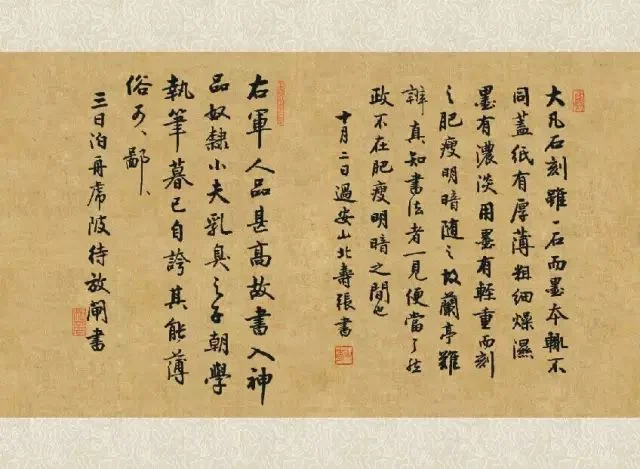 大凡石刻雖一石而墨本輒不
同蓋紙有厚薄粗細燥濕
墨有濃淡用墨有輕重而刻
之肥瘦明暗隨之故蘭亭難
辨真知書法者一見便當了然
政不在肥瘦明暗之間也
十月二日過安山北壽張書
右軍人品甚高故書入神
品奴隸小夫乳臭之子朝學
執筆暮已自誇其能薄
俗可〻鄙〻
三日泊舟虎陂待放閘書